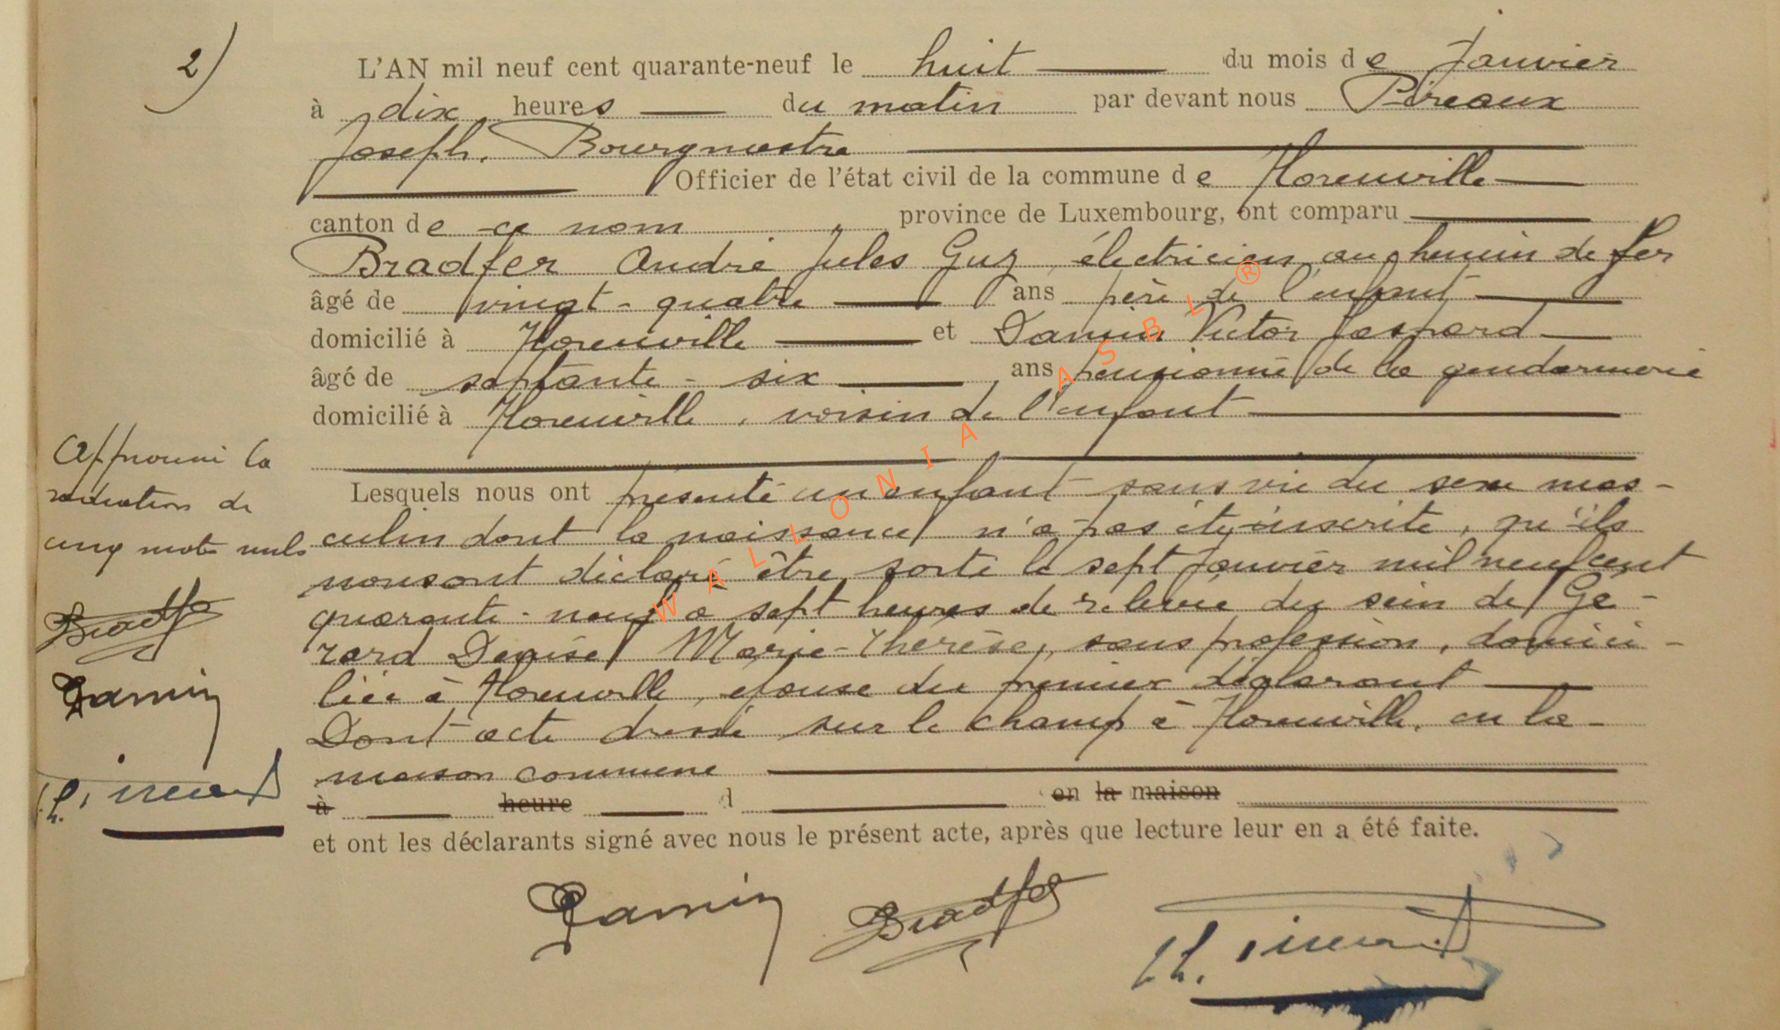 2)
L'AN mil neuf cent quarante-neuf le huit du mois de Janvier
à dix heures du matin par devant nous Pireaux
Joseph, Bourgmestre
Officier de l'état civil de la commune de Florenville
canton de ce nom province de Luxembourg, ont comparu
Bradfer André Jules Guy, électricien au chemin de fer
âgé de vingt-quatre ans père de l'enfant
domicilié à Florenville et Damin Victor Gaspard
âgé de septante-six ans pensionné de la gendarmerie
domicilié à Florenville, voisin de l'enfant
Lesquels nous ont présenté un enfant sans vie du sexe mas-
culin dont la naissance n'a pas été inscrite, qu'ils
nous ont déclaré être sorti le sept Janvier mil neuf cent
quarante-neuf à sept heures de relevée du sein de Gé-
rard Denise Marie-Thérèse, sans profession, domici-
liée à Florenville, épouse du premier déclarant
Dont acte dressé sur le champ à Florenville, en la
maison commune
à heure d en la maison
et ont les déclarants signé avec nous le présent acte, après que lecture leur en a été faite.
Approuvé la
radiation de
cinq mots nuls
Bradfer
Damin
Damin Bradfer
WALLONIA ASBL ®